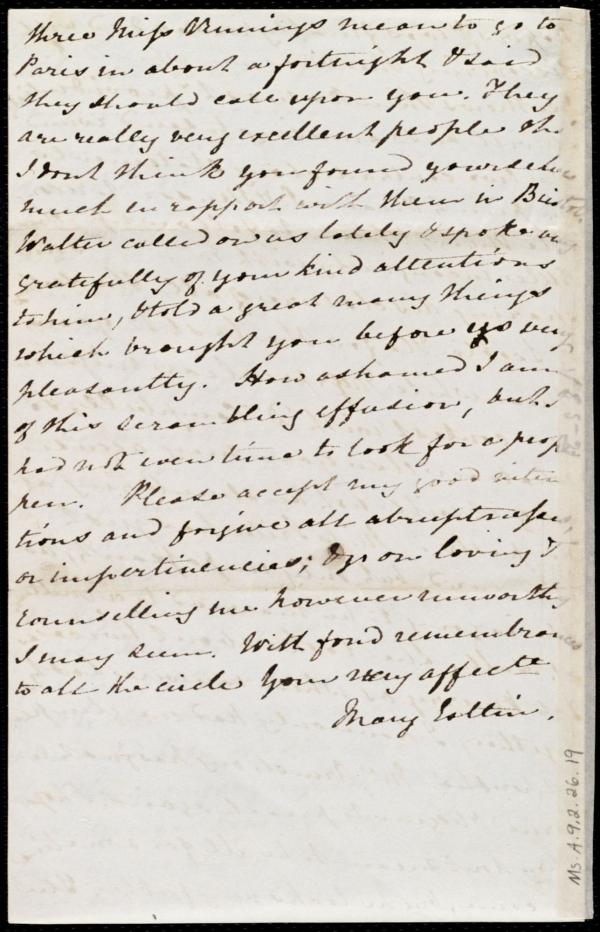 three Miss Vennings mean to go to
Paris in about a fortnight & said
they should call upon you. They
are really very excellent people tho
I dont think you found yourselves
much in rapport with them in Bristol.
Walter called on us lately & spoke very
gratefully of your kind attentions
to him, & told a great many things
which brought you before us very
pleasantly. How ashamed I am
of this scrambling effusion, but I
had not even time to look for a prop
pen. Please accept my good inten
tions and forgive all abruptnesses,
or impertinencies; & go on loving &
counselling me however unworthy
I may seem. With fond remembrances
to all the circle Your very affecte
Mary Estlin.
Ms. A.9.2.26.19